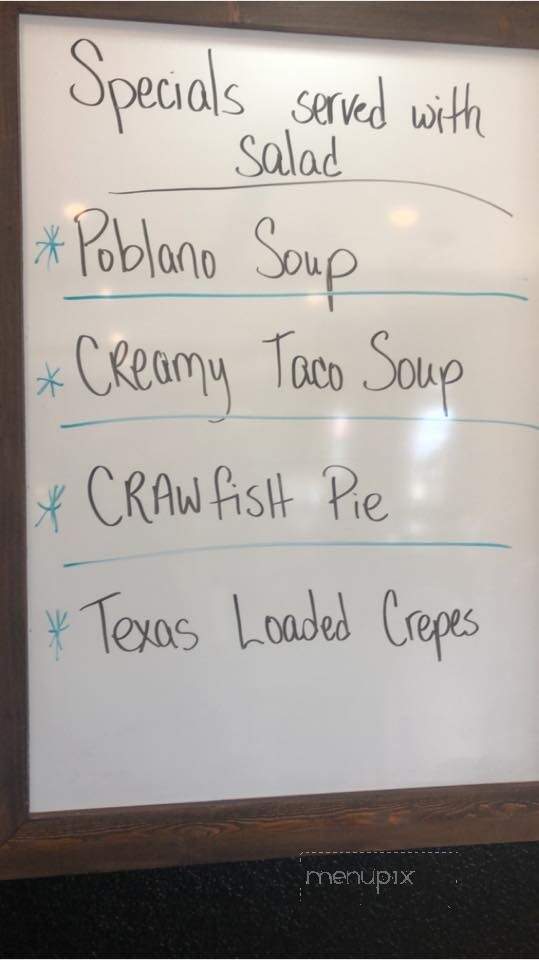 Specials served with
salad
* Poblano Soup
* Creamy Taco Soup
* CRAWfisH Pie
* Texas Loaded Crepes
menupix